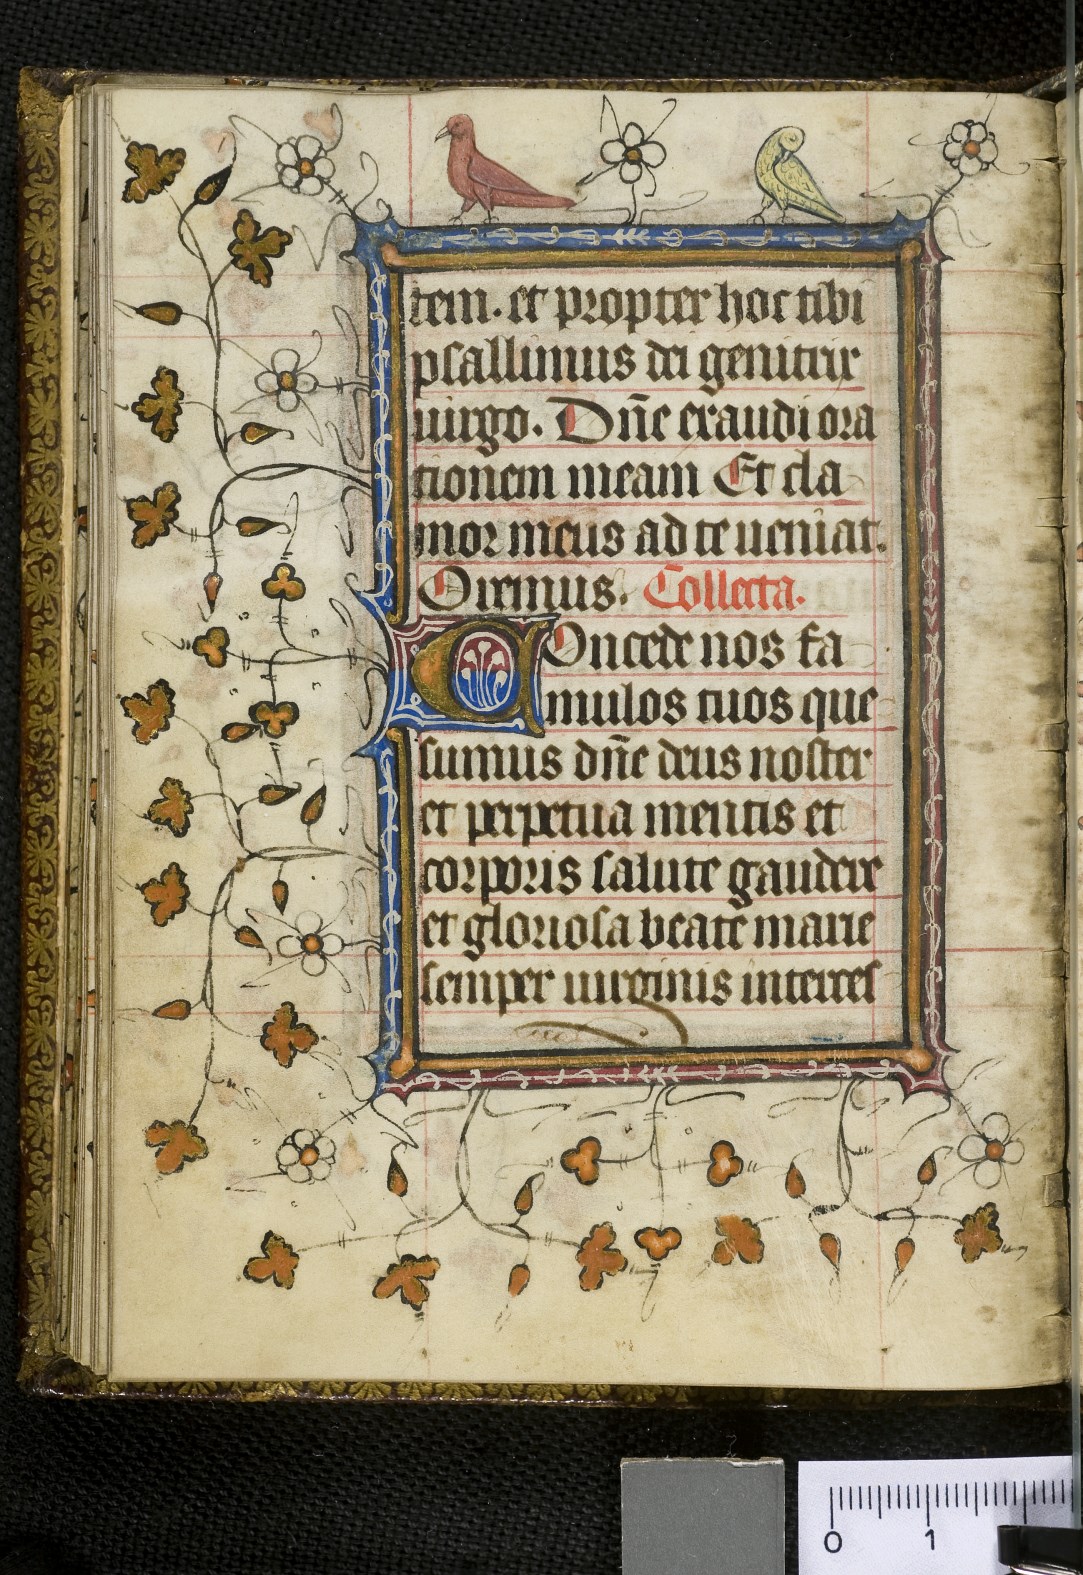 tem. et propter hoc tibi
psallimus dei genitrix
uirgo. Dn̄e exaudi ora
tionem meam Et cla
mor meus ad te ueniat.
Oremus. Collecta.
COncede nos fa
mulos tuos que
sumus dn̄e deus noster
et perpetua mentis et
corporis salute gaudere
et gloriosa beate marie
semper uirginis interces
0 1